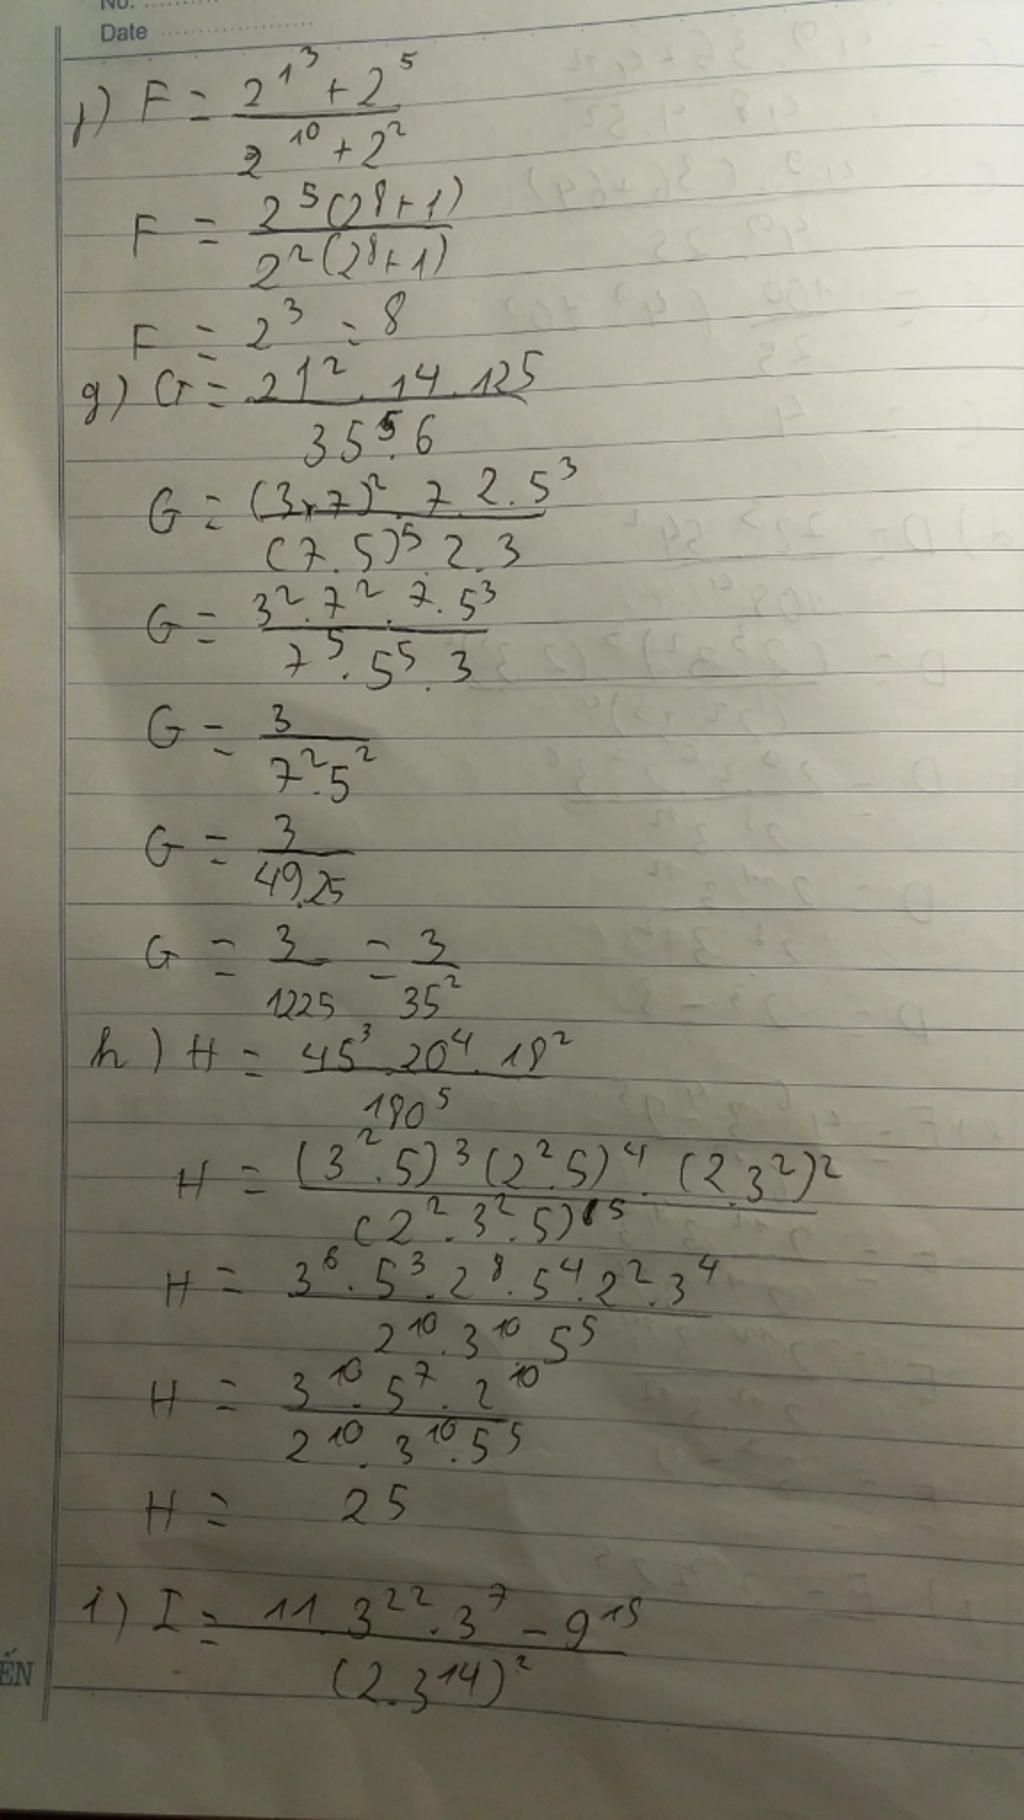 No.
Date
f) F = (2^13 + 2^5) / (2^10 + 2^2)
F = 2^5(2^8+1) / 2^2(2^8+1)
F = 2^3 = 8
g) G = 21^2 . 14 . 125 / 35^5 . 6
G = (3.7)^2 . 7 . 2 . 5^3 / (7.5)^5 . 2 . 3
G = 3^2 . 7^2 . 7 . 5^3 / 7^5 . 5^5 . 3
G = 3 / 7^2 . 5^2
G = 3 / 49.25
G = 3 / 1225 = 3 / 35^2
h) H = 45^3 . 20^4 . 18^2 / 180^5
H = (3^2 . 5)^3 (2^2 . 5)^4 . (2.3^2)^2 / (2^2 . 3^2 . 5)^5
H = 3^6 . 5^3 . 2^8 . 5^4 . 2^2 . 3^4 / 2^10 . 3^10 5^5
H = 3^10 . 5^7 . 2^10 / 2^10 . 3^10 . 5^5
H = 25
i) I = (11 . 3^22 . 3^7 - 9^15) / (2.3^14)^2
ẾN